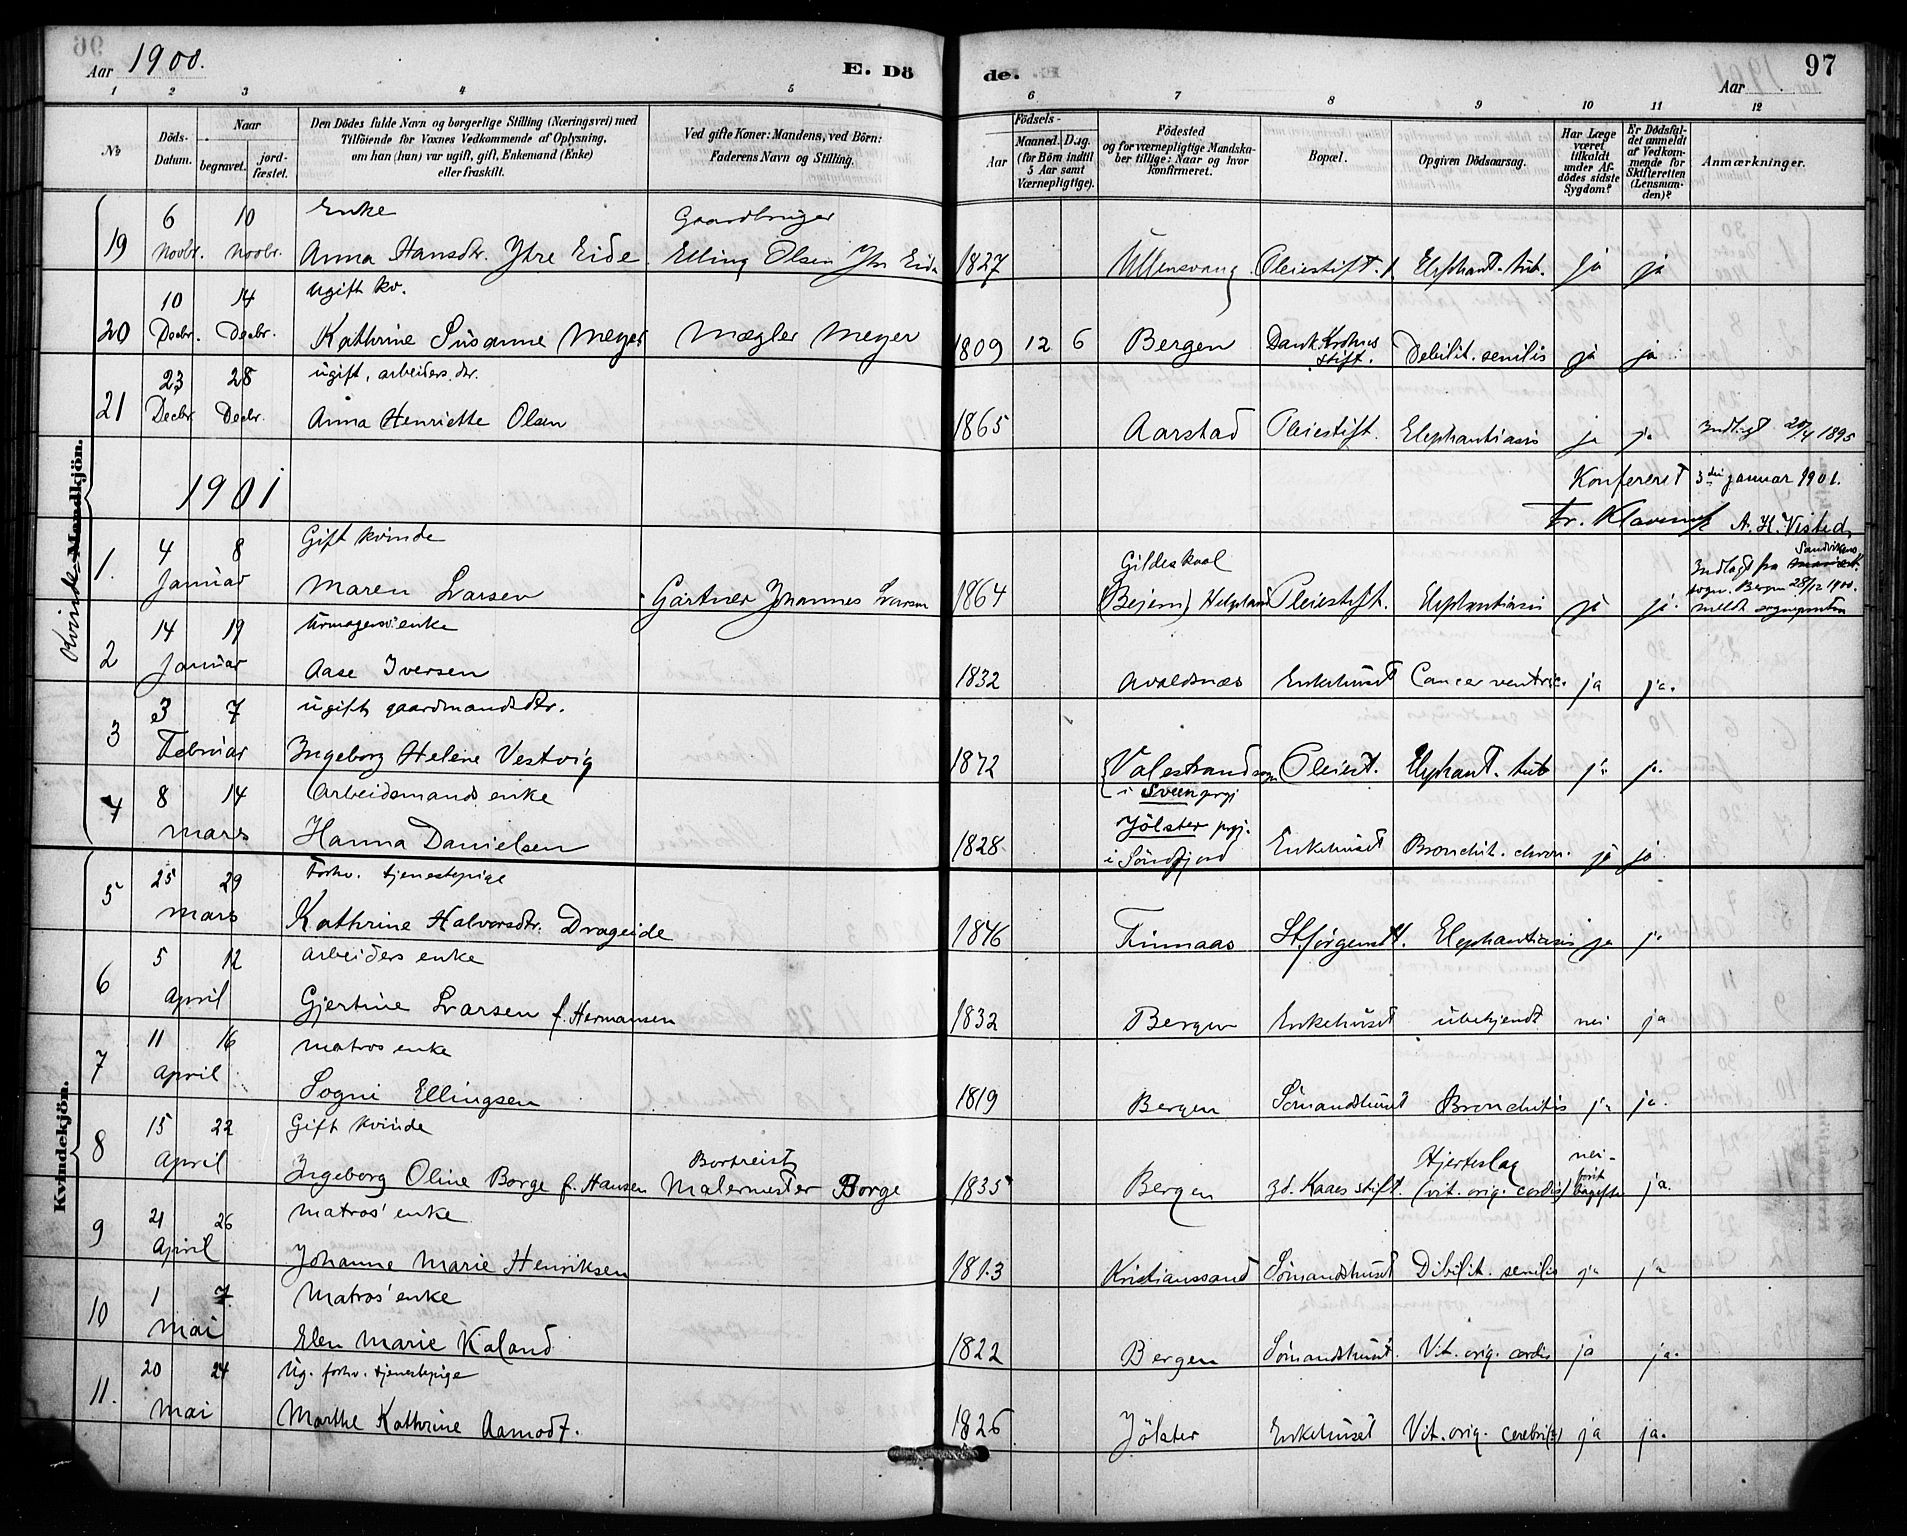 Aar 1900.
E. Dö
de.
Aar
97
1 2 3 4 5 6 7 8 9 10 11 12
No
Döds-Datum.
Naar
begravet.
jord-fæstet.
Den Dödes fulde Navn og borgerlige Stilling (Næringsvei) med
Tilföiende for Voxnes Vedkommende af Oplysning,
om han (hun) var ugift, gift, Enkemand (Enke)
eller fraskilt.
Ved gifte Koner: Mandens, ved Börn:
Faderens Navn og Stilling.
Födsels-
Aar
Maaned. Dag.
(for Börn indtil
5 Aar samt
Værnepligtige).
Födested
og for værnepligtige Mandska-
ber tillige: Naar og hvor
konfirmeret.
Bopæl.
Opgiven Dödsaarsag.
Har Læge
været
tilkaldt
under Af-
dödes sidste
Sygdom?
Er Dödsfal-
det anmeldt
af Vedkom-
mende for
Skifteretten
(Lensman-
den)?
Anmærkninger.
6 10 Enke Gaardbruger
19 Novbr. Novbr. Anna Hansdtr. Ytre Eide Elling Olsen Ytr Eide 1827 Ullensvang Pleiestift. 1 Elephant. tub. ja ja
10 14 Ugift kv.
20 Decbr. Decbr. Kathrine Susanne Meyer Mægler Meyer 1809 12 6 Bergen Dank. Krohns Stift. Debilit. senilis ja ja
23 28 ugift, arbeiders dtr.
21 Decbr. Decbr. Anna Henriette Olsen 1865 Aarstad Pleiestift. Elephantiasis ja ja Indlagt 20/4 1895
Kvinde-Mandkjön.
1901
Konfereret 3die januar 1901.
Fr. Klaveness A. K. Visted
4 8 Gift kvinde
1. Januar Maren Larsen Gartner Johannes Larsen 1864 Gildeskaal (Bejern) Helgeland Pleiestift. Elephantiasis ja ja. Indlagt fra Sandvikens sogn. Bergen 28/12 1900. meldt sognepresten
14 19 Urmagers enke
2 Januar Aase Iversen 1832 Avaldsnæs Enkehuset Cancer ventric. ja ja.
3 7 ugift gaardmandsdtr.
3 Februar Ingeborg Helene Vestvig 1872 Valestrand sogn i Sveen prgj Pleiest. Elephant. tub ja ja.
8 14 Arbeidsmands enke
4 mars Hanna Danielsen 1828 Jölster prgj. i Söndfjord Enkehuset Bronchit. chron. ja ja
25 29 Forhv. tjenestepige
5 mars Kathrine Halvorsdtr. Drageide 1846 Finnaas St. Jörgens H. Elephantiasis ja ja
5 12 arbeiders enke
6 April Gjertine Larsen f. Hermansen 1832 Bergen Enkehuset ubekjendt nei ja
11 16 matros enke
7 April Sogni Ellingsen 1819 Bergen Sömandshuset Bronchitis ja ja.
Kvindekjön.
15 22 Gift kvinde Bortreist
8 April Ingeborg Oline Borge f. Hansen Malermester Borge 1835 Bergen zd. Kaaes stift. Hjerteslag (vit. orig. cordis) nei- ja.
21 26 matros' enke
9 April Johanne Marie Henriksen 1813 Kristianssand Sömandshuset Dibilit. senilis ja ja
1 7. Matros' enke
10 Mai Elen Marie Kaland 1822 Bergen Sömandshuset. Vit. orig. cordis ja ja.
20 24 Ug. forhv. tjenestepige
11. Mai Marthe Kathrine Aamodt. 1826 Jölster Enkehuset Vit. orig. cerebri(?) ja ja.